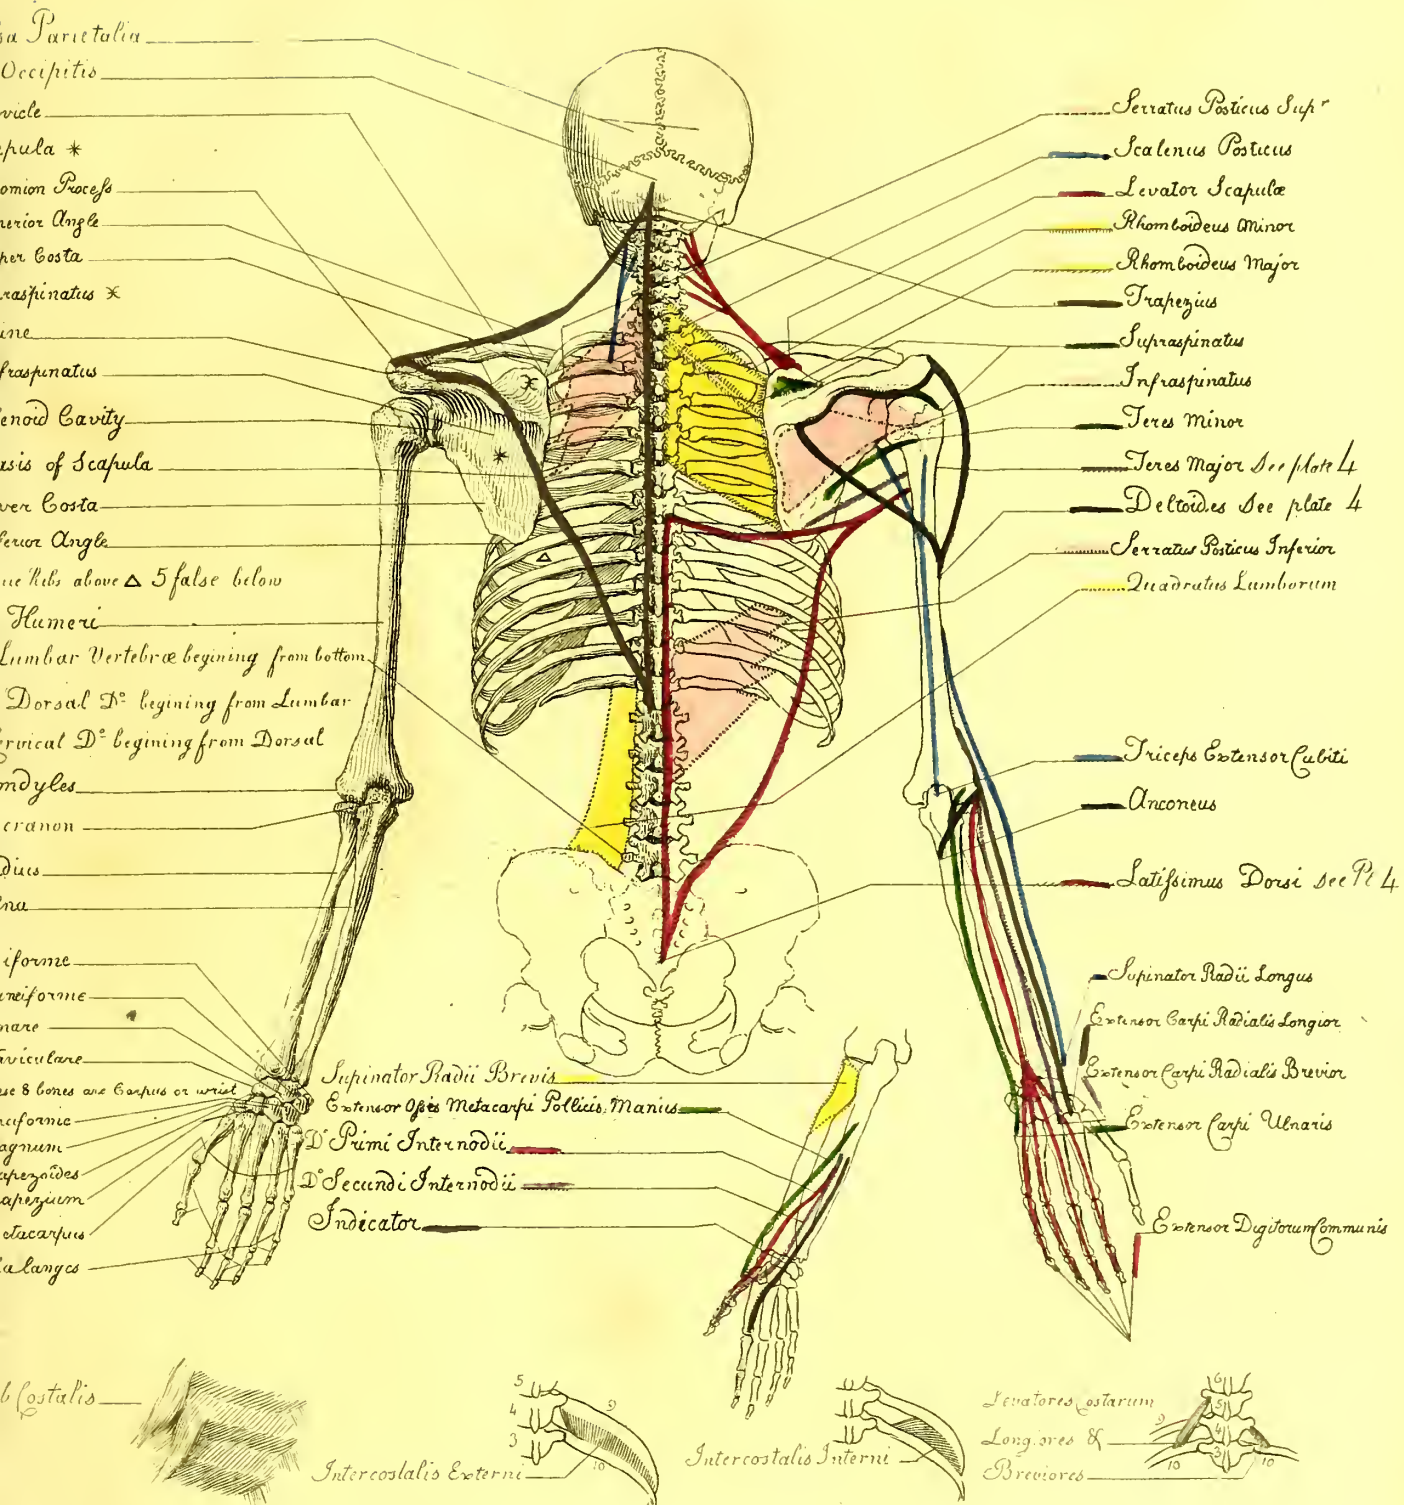 Parietalia
Occipitis
vicle
pula *
omion Process
perior Angle
per Costa
raspinatus *
ine
fraspinatus
enoid Cavity
asis of Scapula
wer Costa
ferior Angle
ue Ribs above △ 5 false below
Humeri
Lumbar Vertebræ begining from bottom
Dorsal Dº begining from Lumbar
ervical Dº begining from Dorsal
ndyles
cranon
dius
lna
iforme
uneiforme
nare
aviculare
ese 8 bones are Carpus or wrist
ciforme
agnum
apezoides
apezium
etacarpus
alanges
Serratus Posticus Supr
Scalenus Posticus
Levator Scapulæ
Rhomboideus Minor
Rhomboideus Major
Trapezius
Supraspinatus
Infraspinatus
Teres Minor
Teres Major See plate 4
Deltoides See plate 4
Serratus Posticus Inferior
Quadratus Lumborum
Triceps Extensor Cubiti
Anconeus
Latissimus Dorsi see Pl 4
Supinator Radii Longus
Extensor Carpi Radialis Longior
Extensor Carpi Radialis Brevior
Extensor Carpi Ulnaris
Extensor Digitorum Communis
Supinator Radii Brevis
Extensor Ossis Metacarpi Pollicis Manus
Dº Primi Internodii
Dº Secundi Internodii
Indicator
b Costalis
5
4
3
9
10
Intercostalis Externi
Intercostalis Interni
Levatores Costarum
Longiores &
Breviores
6
5
4
3
9
10
10